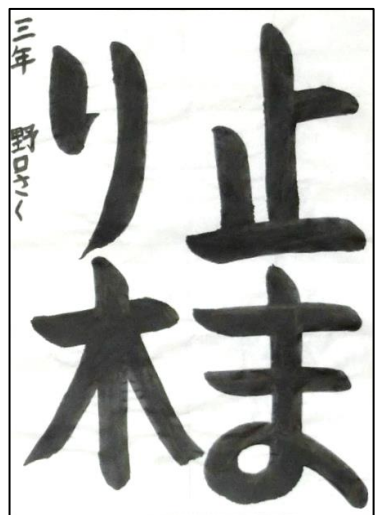 止ま
り木
三年 野口さく